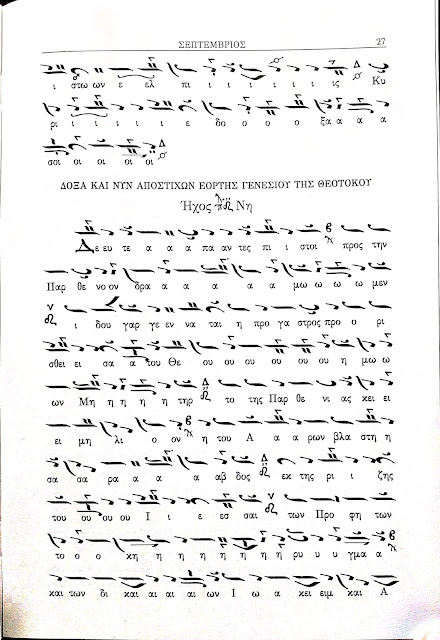 ΣΕΠΤΕΜΒΡΙΟΣ 27
ι στω ων ε ελ πι ι ι ι ι ι ι ις Κυ
ρι ι ι ι ι ε δο ο ο ξα α α α
σοι οι οι οι οι
ΔΟΞΑ ΚΑΙ ΝΥΝ ΑΠΟΣΤΙΧΩΝ ΕΟΡΤΗΣ ΓΕΝΕΣΙΟΥ ΤΗΣ ΘΕΟΤΟΚΟΥ
Ἦχος Νη
Δε ευ τε α α α πα αν τες πι ι στοι προς την
Παρ θε νο ον δρα α α α α α α μω ω ω ω μεν
ι δου γαρ γε εν να ται η προ γα στρος προ ο ρι
σθει ει σα α του Θε ου ου ου ου ου ου η μω ω
ων Μη η η η τηρ το της Παρ θε νι ας κει ει
ει μη λι ο ον η του Α α α ρων βλα στη η
σα σα ρα α α α αβ δος εκ της ρι ζης
του ου ου ου Ι ι ε εσ σαι των Προ φη των
το ο ο κη η η η η η η ρυ υ υγ μα α
και των δι και αι αι αι ων Ι ω α κει ειμ και Α